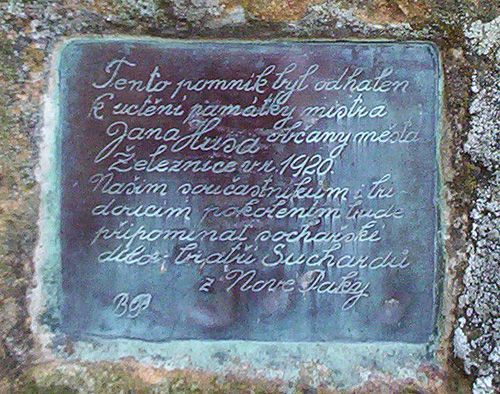 Tento pomník byl odhalen
k uctění památky mistra
Jana Husa občany města
Železnice v r. 1920.
Našim současníkům i bu-
doucím pokolením bude
připomínat sochařské
dílo bratří Suchardů
z Nové Paky